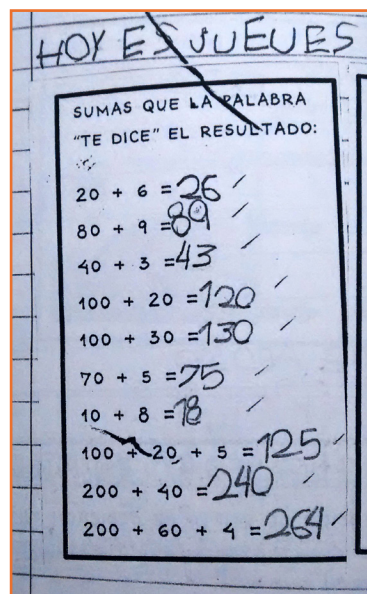 HOY ES JUEUES
SUMAS QUE LA PALABRA
"TE DICE" EL RESULTADO:
20 + 6 = 26
80 + 9 = 89
40 + 3 = 43
100 + 20 = 120
100 + 30 = 130
70 + 5 = 75
10 + 8 = 18
100 + 20 + 5 = 125
200 + 40 = 240
200 + 60 + 4 = 264